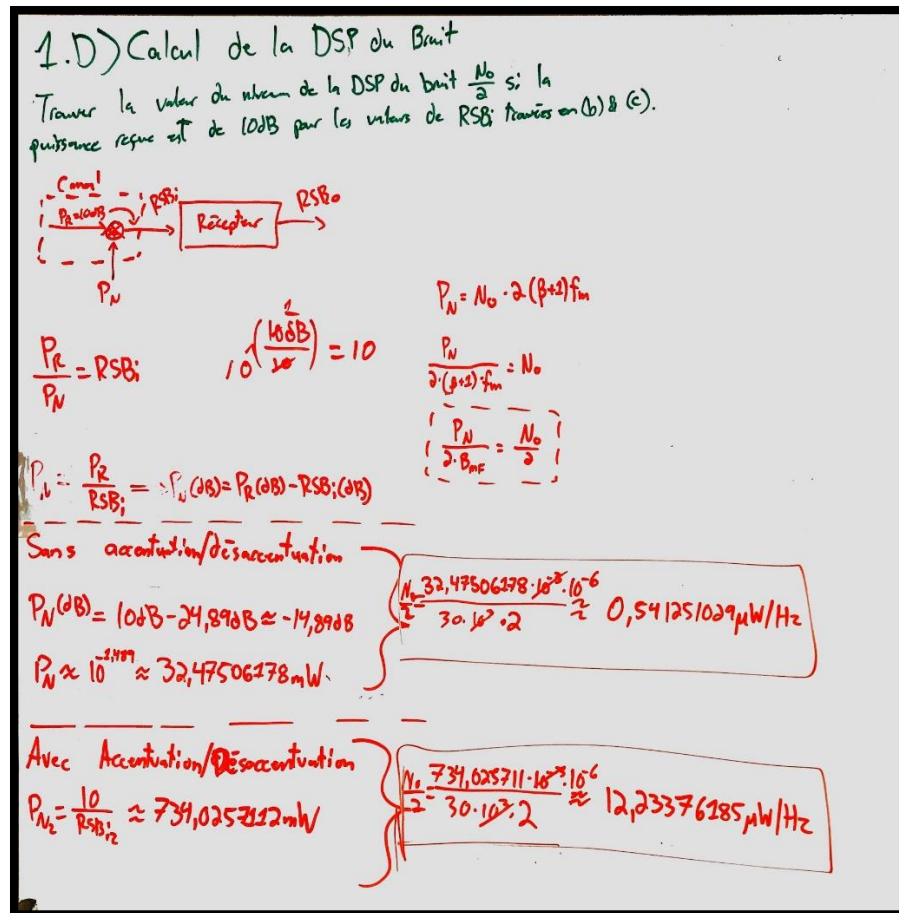 1.D) Calcul de la DSP du Bruit
Trouver la valeur du niveau de la DSP du bruit N₀/2 si la
puissance reçue est de 10dB pour les valeurs de RSBi trouvées en (b) & (c).
Canal
PR=10dB RSBi Récepteur RSBo
PN
PN = N₀ · 2(β+1)fm
PR/PN = RSBi
10^(10dB/10) = 10
1
PN/(2·(β+1)·fm) = N₀
PN/(2·BMF) = N₀/2
PN = PR/RSBi = PN(dB) = PR(dB) - RSBi(dB)
Sans accentuation/désaccentuation
PN(dB) = 10dB - 24,89dB ≈ -14,89dB
PN ≈ 10^-1,489 ≈ 32,47506178 mW.
N₀/2 = 32,47506178·10^-3·10^-6/(30·10^3·2) ≈ 0,541251029 μW/Hz
Avec Accentuation/Désaccentuation
PN2 = 10/RSBi2 ≈ 734,0257112 mW
N₀/2 = 734,025711·10^-3·10^-6/(30·10^3·2) ≈ 12,23376185 μW/Hz